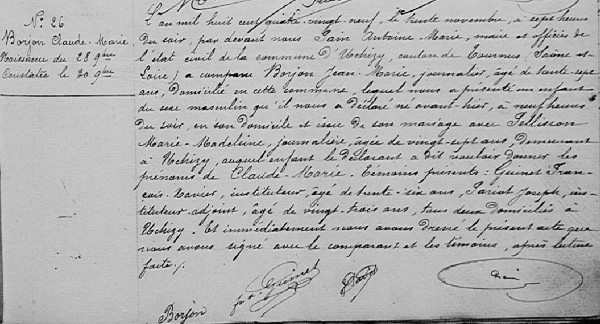 N° 26
Borjon Claude-Marie
Naissance du 28 9bre
Constatée le 30 9bre
L'an mil huit cent quatre-vingt-neuf, le trente novembre, à sept heures
du soir, par devant nous Antoine-Marie, maire et officier de
l'état civil de la commune d'Uchizy, canton de Tournus (Saône et-
Loire) a comparu Borjon Jean-Marie, journalier, âgé de trente-sept
ans, domicilié en cette commune, lequel nous a présenté un enfant
du sexe masculin qu'il nous a déclaré né avant-hier, à neuf heures
du soir, en son domicile et issu de son mariage avec Pellisson
Marie-Madeleine, journalière, âgée de vingt-sept ans, demeurant
à Uchizy, auquel enfant le déclarant a dit vouloir donner les
prénoms de Claude-Marie. Témoins présents: Guinet Fran-
çois-Xavier, instituteur, âgé de trente-six ans, Joseph, ins-
tituteur-adjoint, âgé de vingt-trois ans, tous deux domiciliés à
Uchizy. Et immédiatement nous avons dressé le présent acte que
nous avons signé avec le comparant et les témoins, après lecture
faite./.
Guinet
Borjon